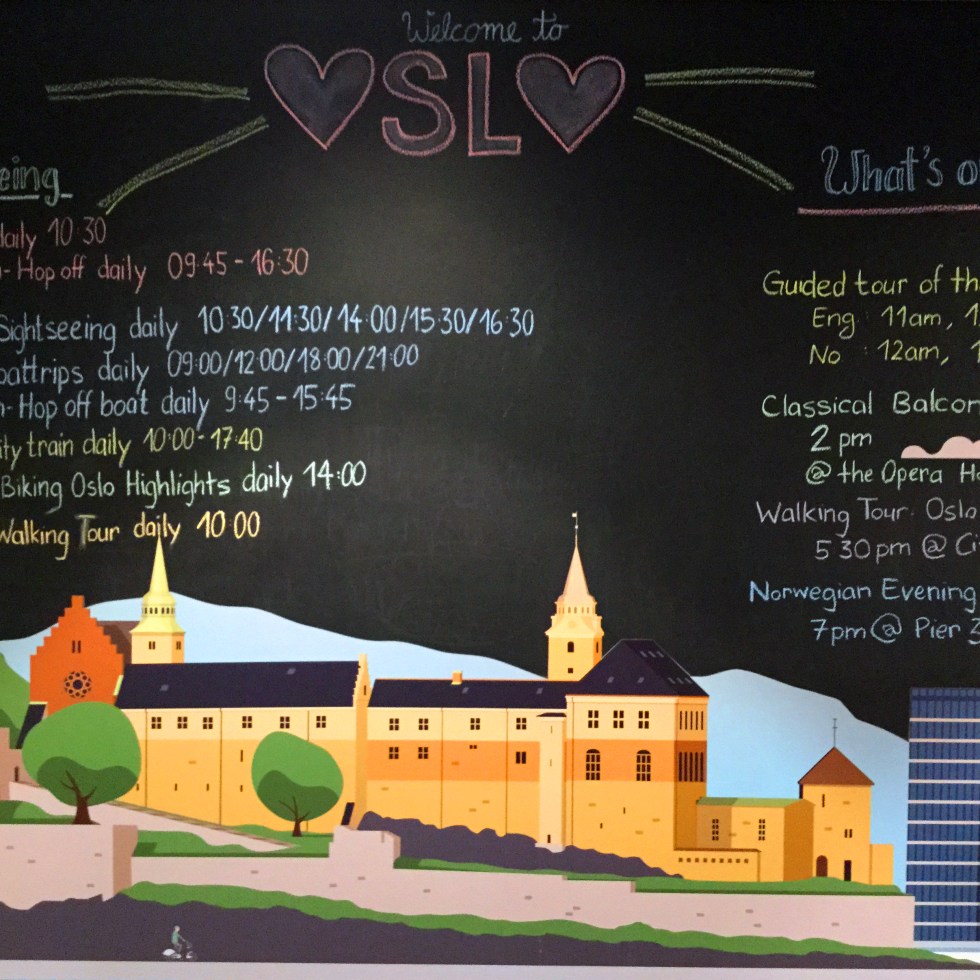 Welcome to
OSLO
eing
daily 10:30
- Hop off daily 09:45 - 16:30
Sightseeing daily 10:30/11:30/14:00/15:30/16:30
oattrips daily 09:00/12:00/18:00/21:00
- Hop off boat daily 9:45 - 15:45
ity train daily 10:00 - 17:40
Biking Oslo Highlights daily 14:00
Walking Tour daily 10:00
What's o
Guided tour of th
Eng : 11am, 1
No : 12am, 1
Classical Balcon
2 pm
@ the Opera Ho
Walking Tour: Oslo
5:30pm @ Ci
Norwegian Evening
7pm @ Pier